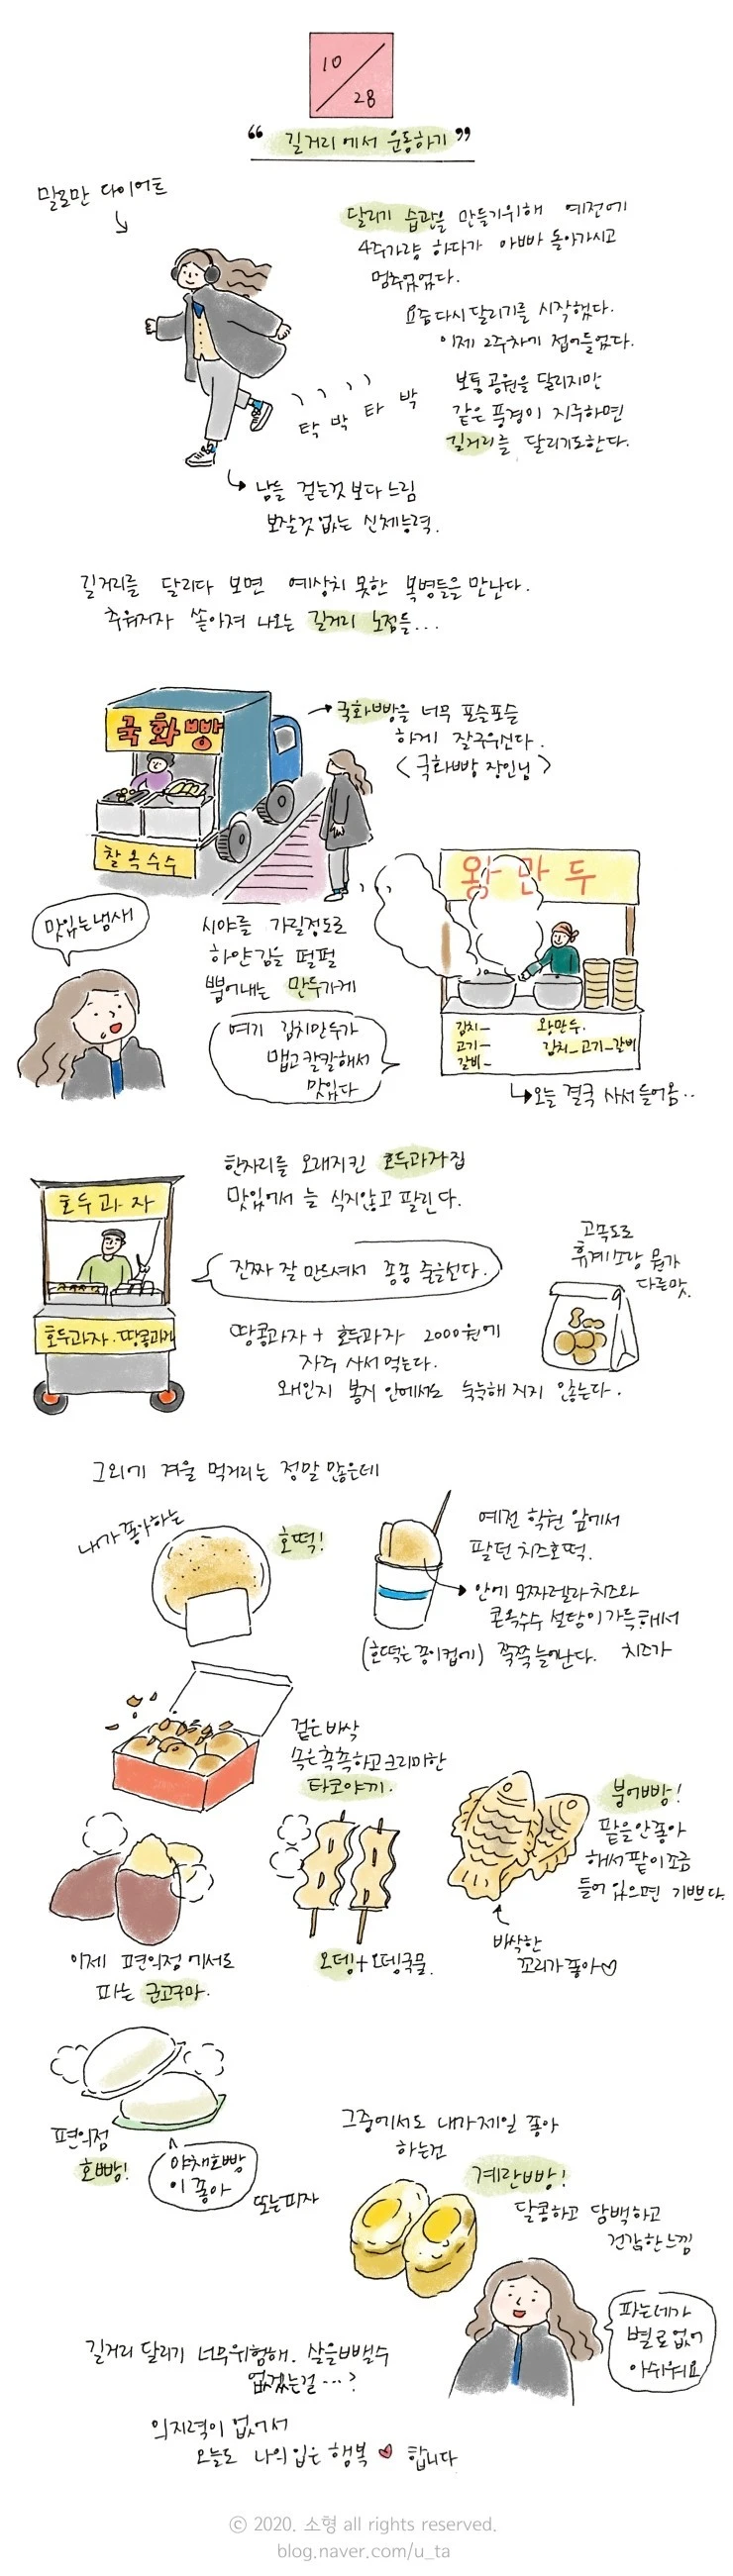 10
28
“ 길거리에서 운동하기 ”
말로만 다이어트
달리기 습관을 만들기위해 예전에
4주가량 하다가 아빠 돌아가시고
멈추었었다.
요즘 다시 달리기를 시작했다.
이제 2주차에 접어들었다.
보통 공원을 달리지만
같은 풍경이 지루하면
길거리를 달리기도한다.
탁 박 타 박
남들 걷는것 보다 느림
보잘것 없는 신체능력.
길거리를 달리다 보면 예상치 못한 복병들을 만난다.
추워지자 쏟아져 나오는 길거리 노점들...
국화빵
찰옥수수
국화빵을 너무 포슬포슬
하게 잘구우신다.
< 국화빵 장인님 >
맛있는냄새
시야를 가릴정도로
하얀김을 펄펄
뿜어내는 만두가게
여기 김치만두가
맵고 칼칼해서
맛있다
왕만두
김치-
고기-
갈비-
왕만두.
김치-고기-갈비
오늘 결국 사서 들어옴..
한자리를 오래지킨 호두과자집
맛있어서 늘 식지않고 팔린다.
호두과자
호두과자.땅콩과자
진짜 잘 만드셔서 종종 줄을선다.
고속도로
휴게소랑 뭔가
다른맛.
땅콩과자 + 호두과자 2000원에
자주 사서 먹는다.
왜인지 봉지 안에서도 눅눅해 지지 않는다.
그외에 겨울 먹거리는 정말 많은데
내가 좋아하는
호떡!
예전 학원 앞에서
팔던 치즈호떡.
안에 모짜렐라치즈와
콘옥수수 설탕이가득해서
(호떡은 종이컵에) 쭉쭉 늘어난다. 치즈가
겉은 바삭
속은 촉촉하고 크리미한
타코야끼.
붕어빵!
팥을 안좋아
해서 팥이조금
들어 있으면 기쁘다.
바삭한
꼬리가 좋아♡
이제 편의점 에서도
파는 군고구마.
오뎅+오뎅국물.
편의점
호빵!
야채호빵
이 좋아
또는피자
그중에서도 내가제일 좋아
하는건
계란빵!
달콤하고 담백하고
건강한느낌
파는데가
별로없어
아쉬워요
길거리 달리기 너무위험해. 살을빼빼수
없겠는걸...?
의지력이 없어서
오늘도 나의 입은 행복♥ 합니다
© 2020. 소형 all rights reserved.
blog.naver.com/u_ta